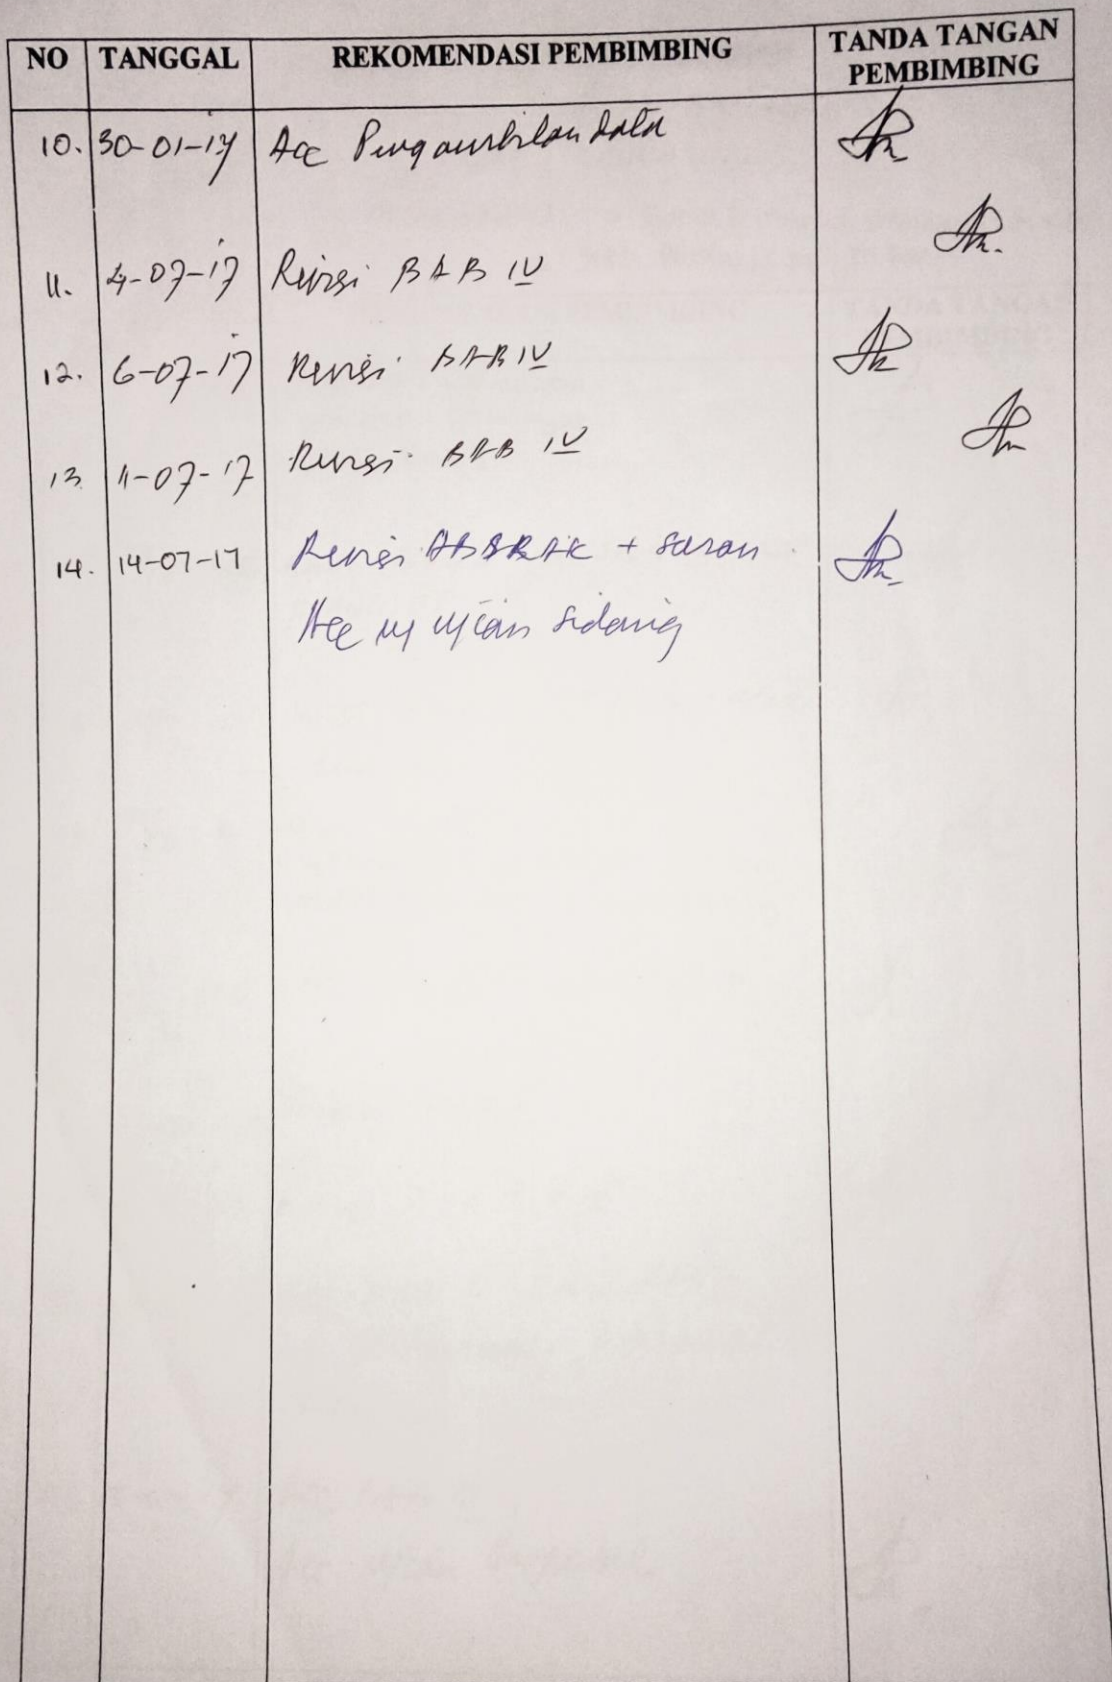 NO TANGGAL REKOMENDASI PEMBIMBING TANDA TANGAN
PEMBIMBING
10. 30-01-17 Acc Pengambilan data
11. 4-07-17 Revisi BAB IV
12. 6-07-17 Revisi BAB IV
13. 11-07-17 Revisi BAB IV
14. 14-07-17 Revisi + saran
Acc ujian sidang